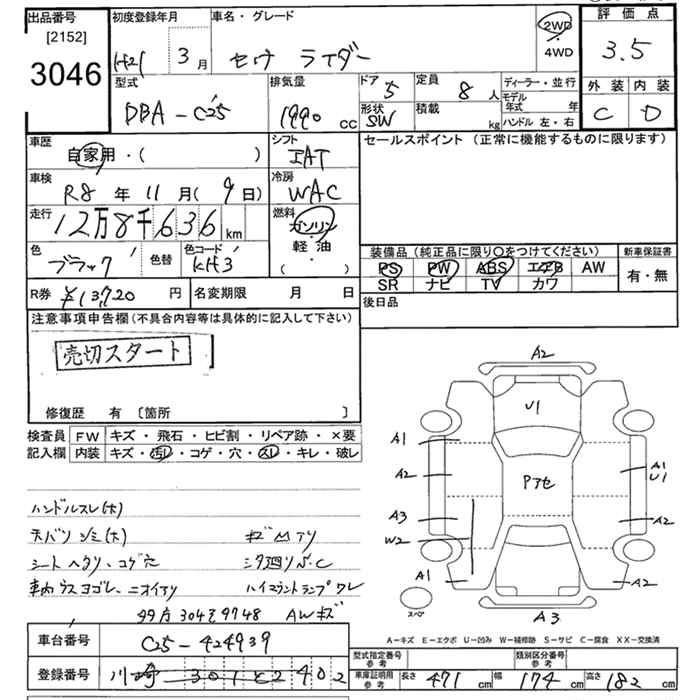 出品番号
[2152]
3046
初度登録年月
H21 3月
車名・グレード
セレナ ライダー
2WD
・
4WD
評価点
3.5
外装 内装
C D
型式
DBA-C25
排気量
1990 CC
ドア
5
形状
SW
定員
8人
積載
kg
ディーラー・並行
モデル年式 年
ハンドル 左・右
車歴
自家用・( )
シフト
IAT
車検
R8年11月(9日)
冷房
WAC
走行
12万8千636km
燃料
ガソリン
・
軽油
( ・ )
色
ブラック
色替
色コード
KH3
R券
¥13,720円
名変期限 月 日
セールスポイント(正常に機能するものに限ります)
装備品(純正品に限り○をつけてください)
PS PW ABS エアB AW
SR ナビ TV カワ
新車保証書
有・無
後日品
注意事項申告欄(不具合内容等は具体的に記入して下さい)
売切スタート
修復歴 有〔箇所 〕
検査員記入欄
FW キズ・飛石・ヒビ割・リペア跡・×要
内装 キズ・汚レ・コゲ・穴・スレ・キレ・破レ
ハンドルスレ(大)
天バリ シミ(大) キズ凹アリ
シート ヘタリ、コゲ穴 シタ廻りサビ.C
車内ウスヨゴレ、ニオイアリ ハイマウントランプワレ
99万304を9748 AWキズ
A2
U1
A1
A2
A1
U1
Pアセ
A3
W2
A2
A1
A2
スペア
A3
A-キズ E-エクボ U-凹み W-補修跡 S-サビ C-腐食 XX-交換済
車台番号
C25-424939
登録番号
川崎 301 と 2402
型式指定番号
参考
類別区分番号
参考
車庫証明用
参考
長さ 471cm 幅 174cm 高さ 182cm